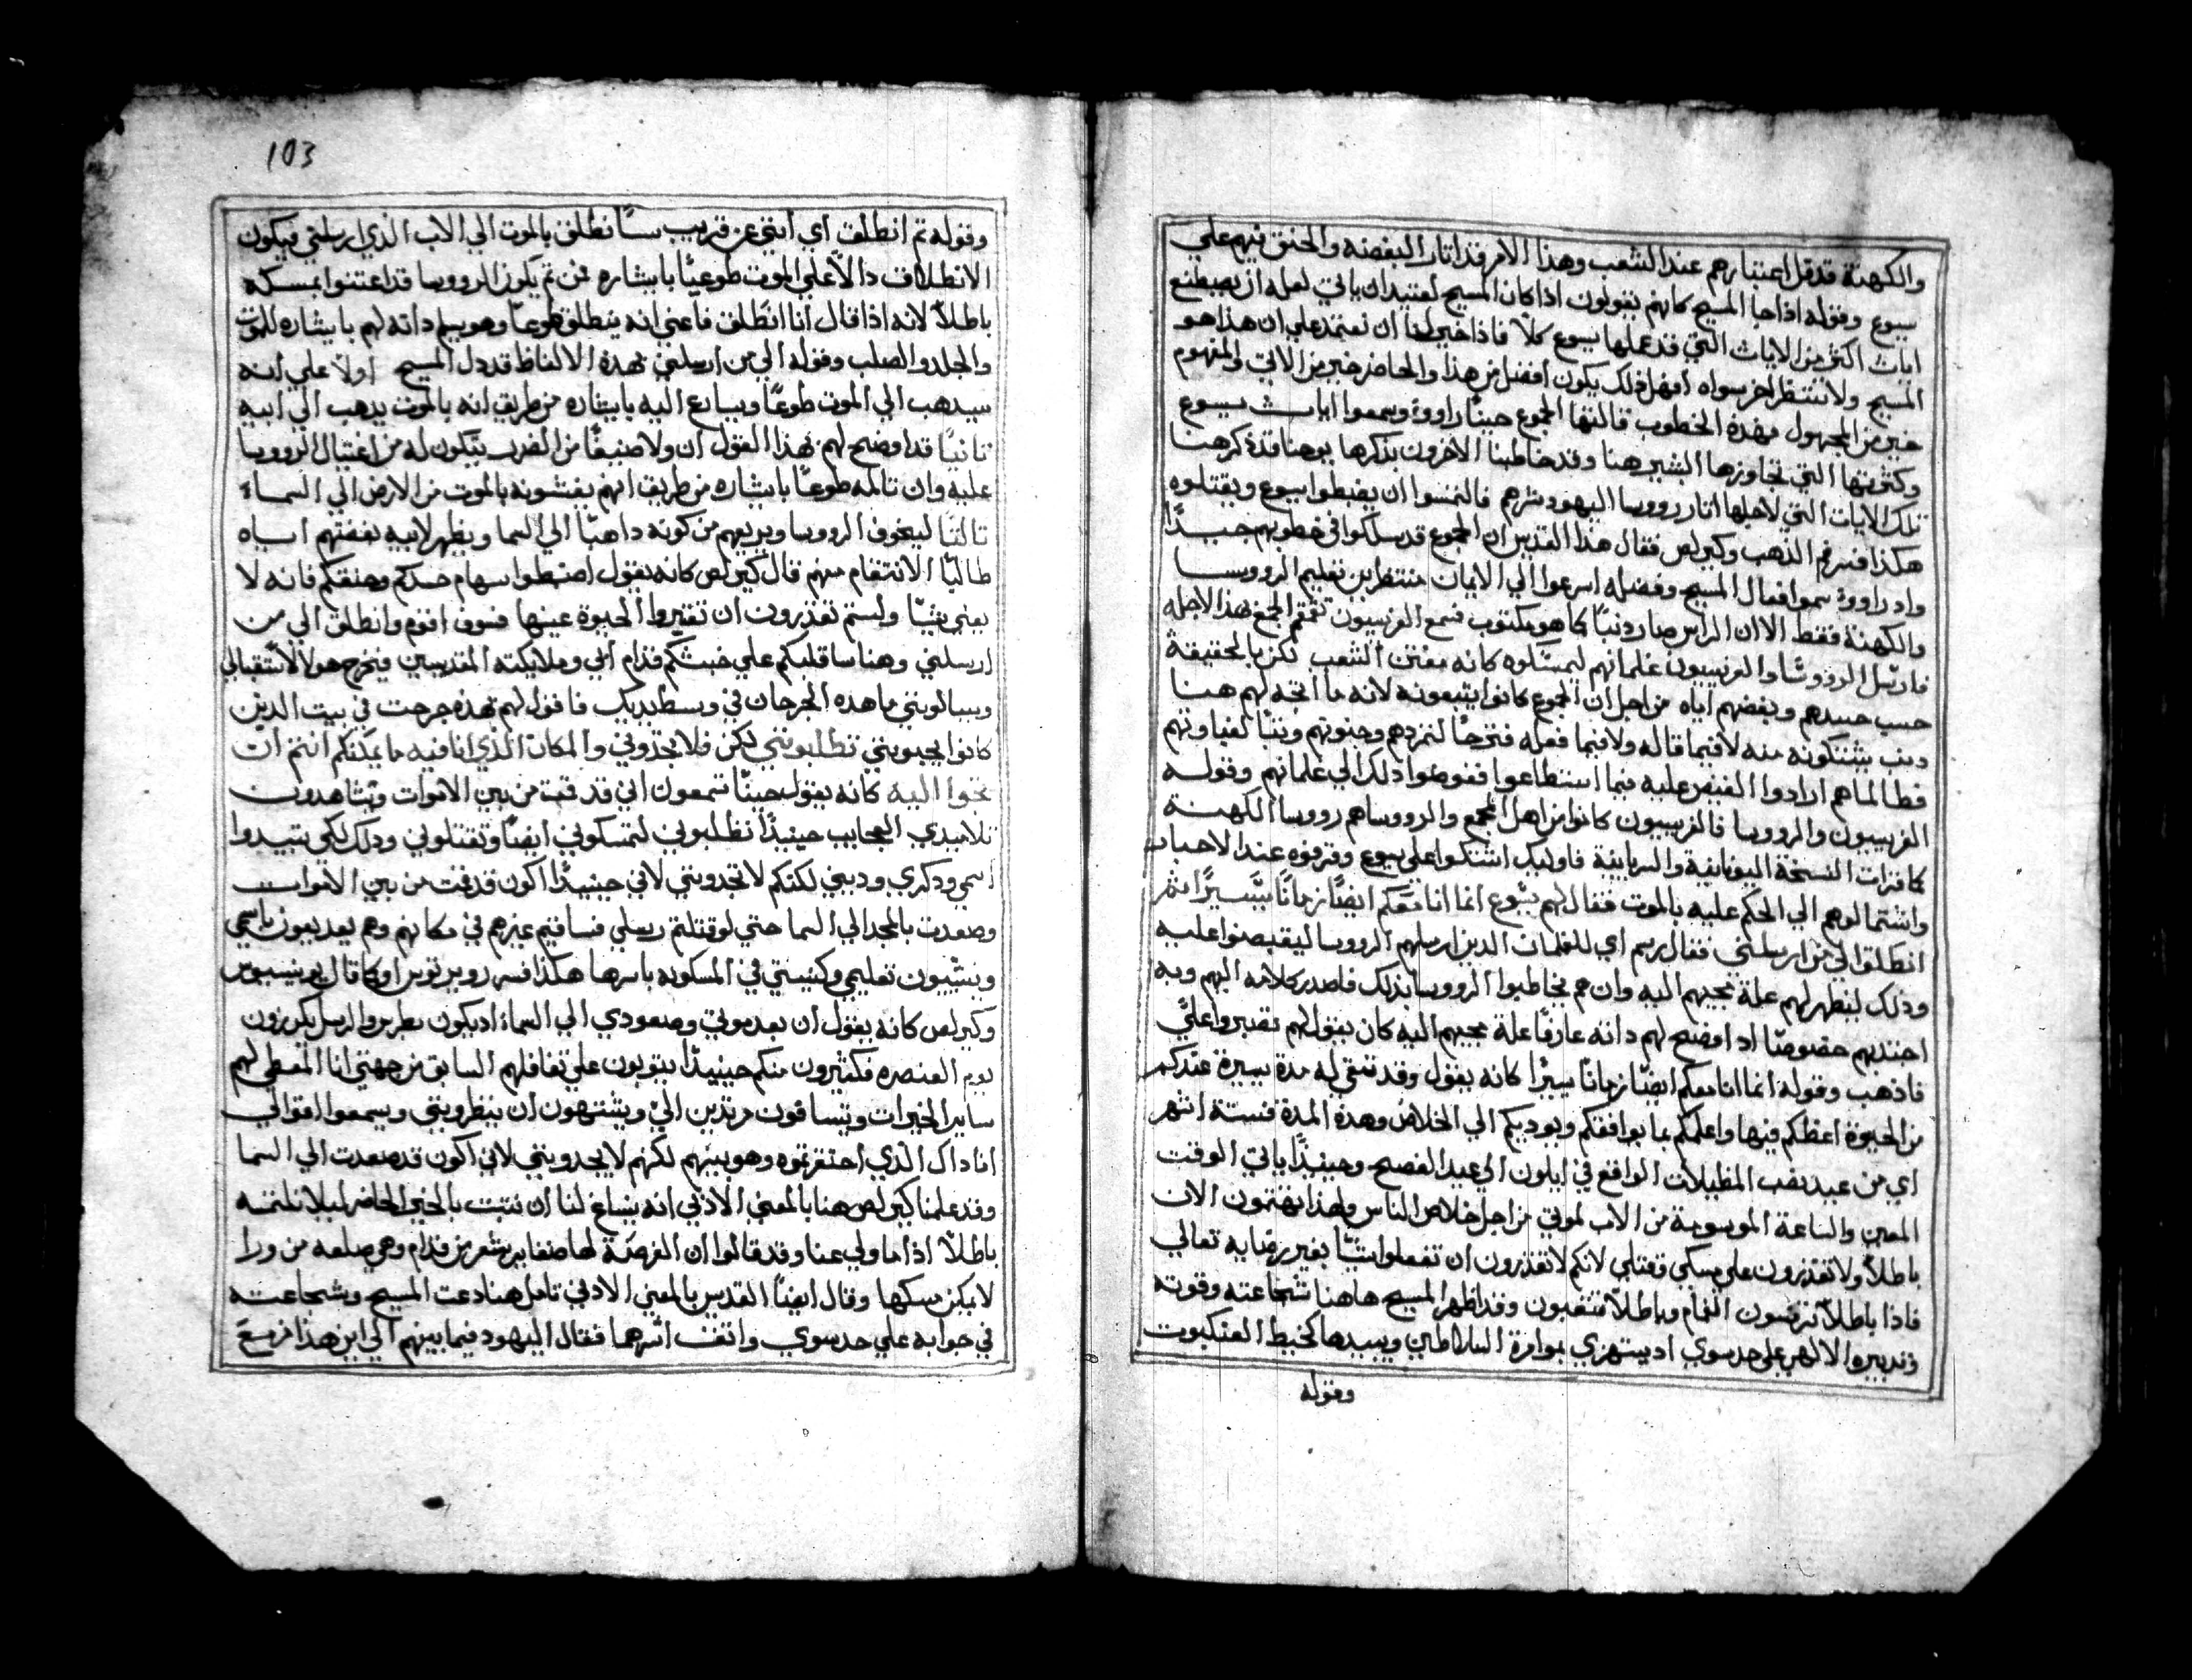 والكهنة قدقل اعتبارهم عند الشعب وهذا الامر قد اثار البغضه والحنق فيهم علي
يسوع وقوله اذا جا المسيح كانهم يقولون اذا كان المسيح لعتيد ان ياتي لعله ان يصطنع
ايات اكثر من الايات التي قد عملها يسوع كلا فاذا خير لنا ان نعتمد علي ان هذا هو
المسيح ولا ننتظر اخر سواه افهل ذلك يكون افضل من هذا والحاضر خير من الاتي والمفهوم
خير من المجهول فهذه الخطوب قالتها الجموع حينا راووه وسمعوا ايات يسوع
وكثرتها التي تجاوزها البشير هنا وقد خاطبنا الاخرون بذكرها يوحنا قد ذكر هنا
تلك الايات التي لاجلها اثار روسا اليهود شرهم فالتمسوا ان يضبطوا يسوع ويقتلوه
هكذا فسر فم الذهب وكيرلص فقال هذا القديس ان الجموع قد سلكوا في خطوبهم جيدا
واد راووه سموا افعال المسيح وفضله اسرعوا الي الايمان منتظرين تعليم الروسا
والكهنة فقط الا ان الراس صار دنبا كما هو مكتوب فسمع الفريسيون تقمقم الجمع بهذا لاجله
فارسل الروسا والفريسيون غلمانهم ليمسكوه كانه مفتن الشعب لكن بالحقيقة
حسب حسدهم وبغضهم اياه من اجل ان الجموع كانوا يتبعونه لانه ما اتجه لهم هنا
دنب يشتكونه منه لا فيما قاله ولا فيما فعله فتوجا لتمردهم وجنونهم وتبا لغباوتهم
فطالما هم ارادوا القبض عليه فيما استطاعوا ففوضوا ذلك الي غلمانهم وقوله
الفريسيون والروسا فالفريسيون كانوا من اهل الجمع والرووساهم رووسا الكهنة
كما قرات النسخة اليونانية والسريانية فاوليك اشتكوا علي يسوع وقرفوه عند الاحبار
واشتمالوهم الي الحكم عليه بالموت فقال لهم يسوع انما انا معكم ايضا زمانا يسيرا ثم
انطلق الي من ارسلني فقال لهم اي للغلمان الدين ارسلهم الروسا ليقبضوا عليه
وذلك ليظهر لهم علة مجيهم اليه وان هم يخاطبوا الروسا بذلك فاصدر كلامه اليهم وبه
اجتذبهم خصوصا اد اوضح لهم داته عارفا علة مجيهم اليه كان يقول لهم تصبروا علي
فاذهب وقوله انما انا معكم ايضا زمانا يسيرا كانه يقول وقد تبقي له مدة يسيرة عندكم
من الحيوة اعظكم فيها واعلمكم بما يوافقكم ويوديكم الي الخلاص وهذه المدة فستة اشهر
اي من عيد نصب المظلات الواقع في ايلون الي عيد الفصح وحينيذا ياتي الوقت
المعين والساعة الموسومة من الاب لموتي من اجل خلاص الناس ولهذا تهتمون الان
باطلا ولا تقدرون علي مسكي وقتلي لانكم لا تقدرون ان تفعلوا شيا بغير رضايه تعالي
فاذا باطلا ترضون الغمام وباطلا تتعبون وقد اظهر المسيح هاهنا شجاعته وقوته
وتدبيره الالهي علي حد سوي اد يستهزي بموامرة السلاطين ويبيدها كخيط العنكبوت
وقوله
103
وقوله ثم انطلق اي انني عن قريب سانطلق بالموت الي الاب الذي ارسلني فيكون
الانطلاق دالا علي الموت طوعيا بايثاره فمن ثم يكون الروسا قد اعتنوا بمسكه
باطلا لانه اذا قال انا انطلق فاعني انه ينطلق طوعا وهو يسلم داته لهم بايثاره للموت
والجلد والصلب وقوله الي من ارسلني فهذه الالفاظ قد دل المسيح اولا علي انه
سيدهب الي الموت طوعا ويسارع اليه بايثاره من طريق انه بالموت يدهب الي ابيه
ثانيا قد اوضح لهم بهذا القول ان ولا صنفا من الضرب يتكون له من اغتيال الروسا
عليه وان تالمه طوعا بايثاره من طريق انهم يفشونه بالموت من الارض الي السماء
ثالثا ليخوف الروسا ويريعهم من كونه داهبا الي السما ويظهر لابيه بغضتهم اياه
طالبا الانتقام منهم قال كيرلص كانه يقول اضبطوا سهام حسدكم وحنقكم فانه لا
يعني شيا ولستم تقدرون ان تقبروا الحيوة عينها فسوف اقوم وانطلق الي من
ارسلني وهناسا قلبكم علي خبثكم قدام ابي وملايكته المقدسين فيخرج هولا لاستقبالي
ويسالونني ما هذه الجرحان في وسط يديك فاقول لهم بهذه جرحت في بيت الدين
كانوا يحبونني تطلبونني لكن فلا تجدوني والمكان الذي انا فيه ما يمكنكم انتم ان
تجوا اليه كانه يقول حينا تسمعون اني قد قمت من بين الاموات وتشاهدون
تلاميدي العجايب حينيذا تطلبوني لتمسكوني ايضا وتقتلوني ودلك لكي تبيدوا
اسمي ودكري وديني لكنكم لا تجدونني لاني حينيذا اكون قد قمت من بين الاموات
وصعدت بالمجد الي السما حتي لو قتلتم رسلي فساقيم غيرهم في مكانهم وهم يعد يعون باسمي
وينشيون تعليمي وكنيستي في المسكونه باسرها هكذا فسر روبرتوس اوكما قال
وكيرلص كانه يقول ان بعد موتي وصعودي الي السماء اد يكون بطرس والرسل يكرزون
يوم العنصره فكثيرون منكم حينيذا يتوبون علي تغافلهم السابق من جهتي انا المعطي لهم
ساير الخيرات ويتسافون مرتدين الي ويشتهون ان ينظرونني ويسمعوا اقوالي
انا داك الذي احتقرتموه وهو بينهم لكنهم لا يجدونني لاني اكون قد صعدت الي السما
وقد علمنا كيرلص هنا بالمعني الادبي انه ينساغ لنا ان نتبت بالخير الحاضر ليلا نلتمسه
باطلا اذا ما ولي عنا وقد قالوا ان الفرصة لها ضفاير شعر من قدام وهي صلعه من ورا
لا يمكن مسكها وقال ايضا القديس بالمعني الادبي تامل هنا دعت المسيح وشجاعته
في جوابه علي حد سوي واتقف اثرهما فقال اليهود فيما بينهم الي اين هذا مزمع